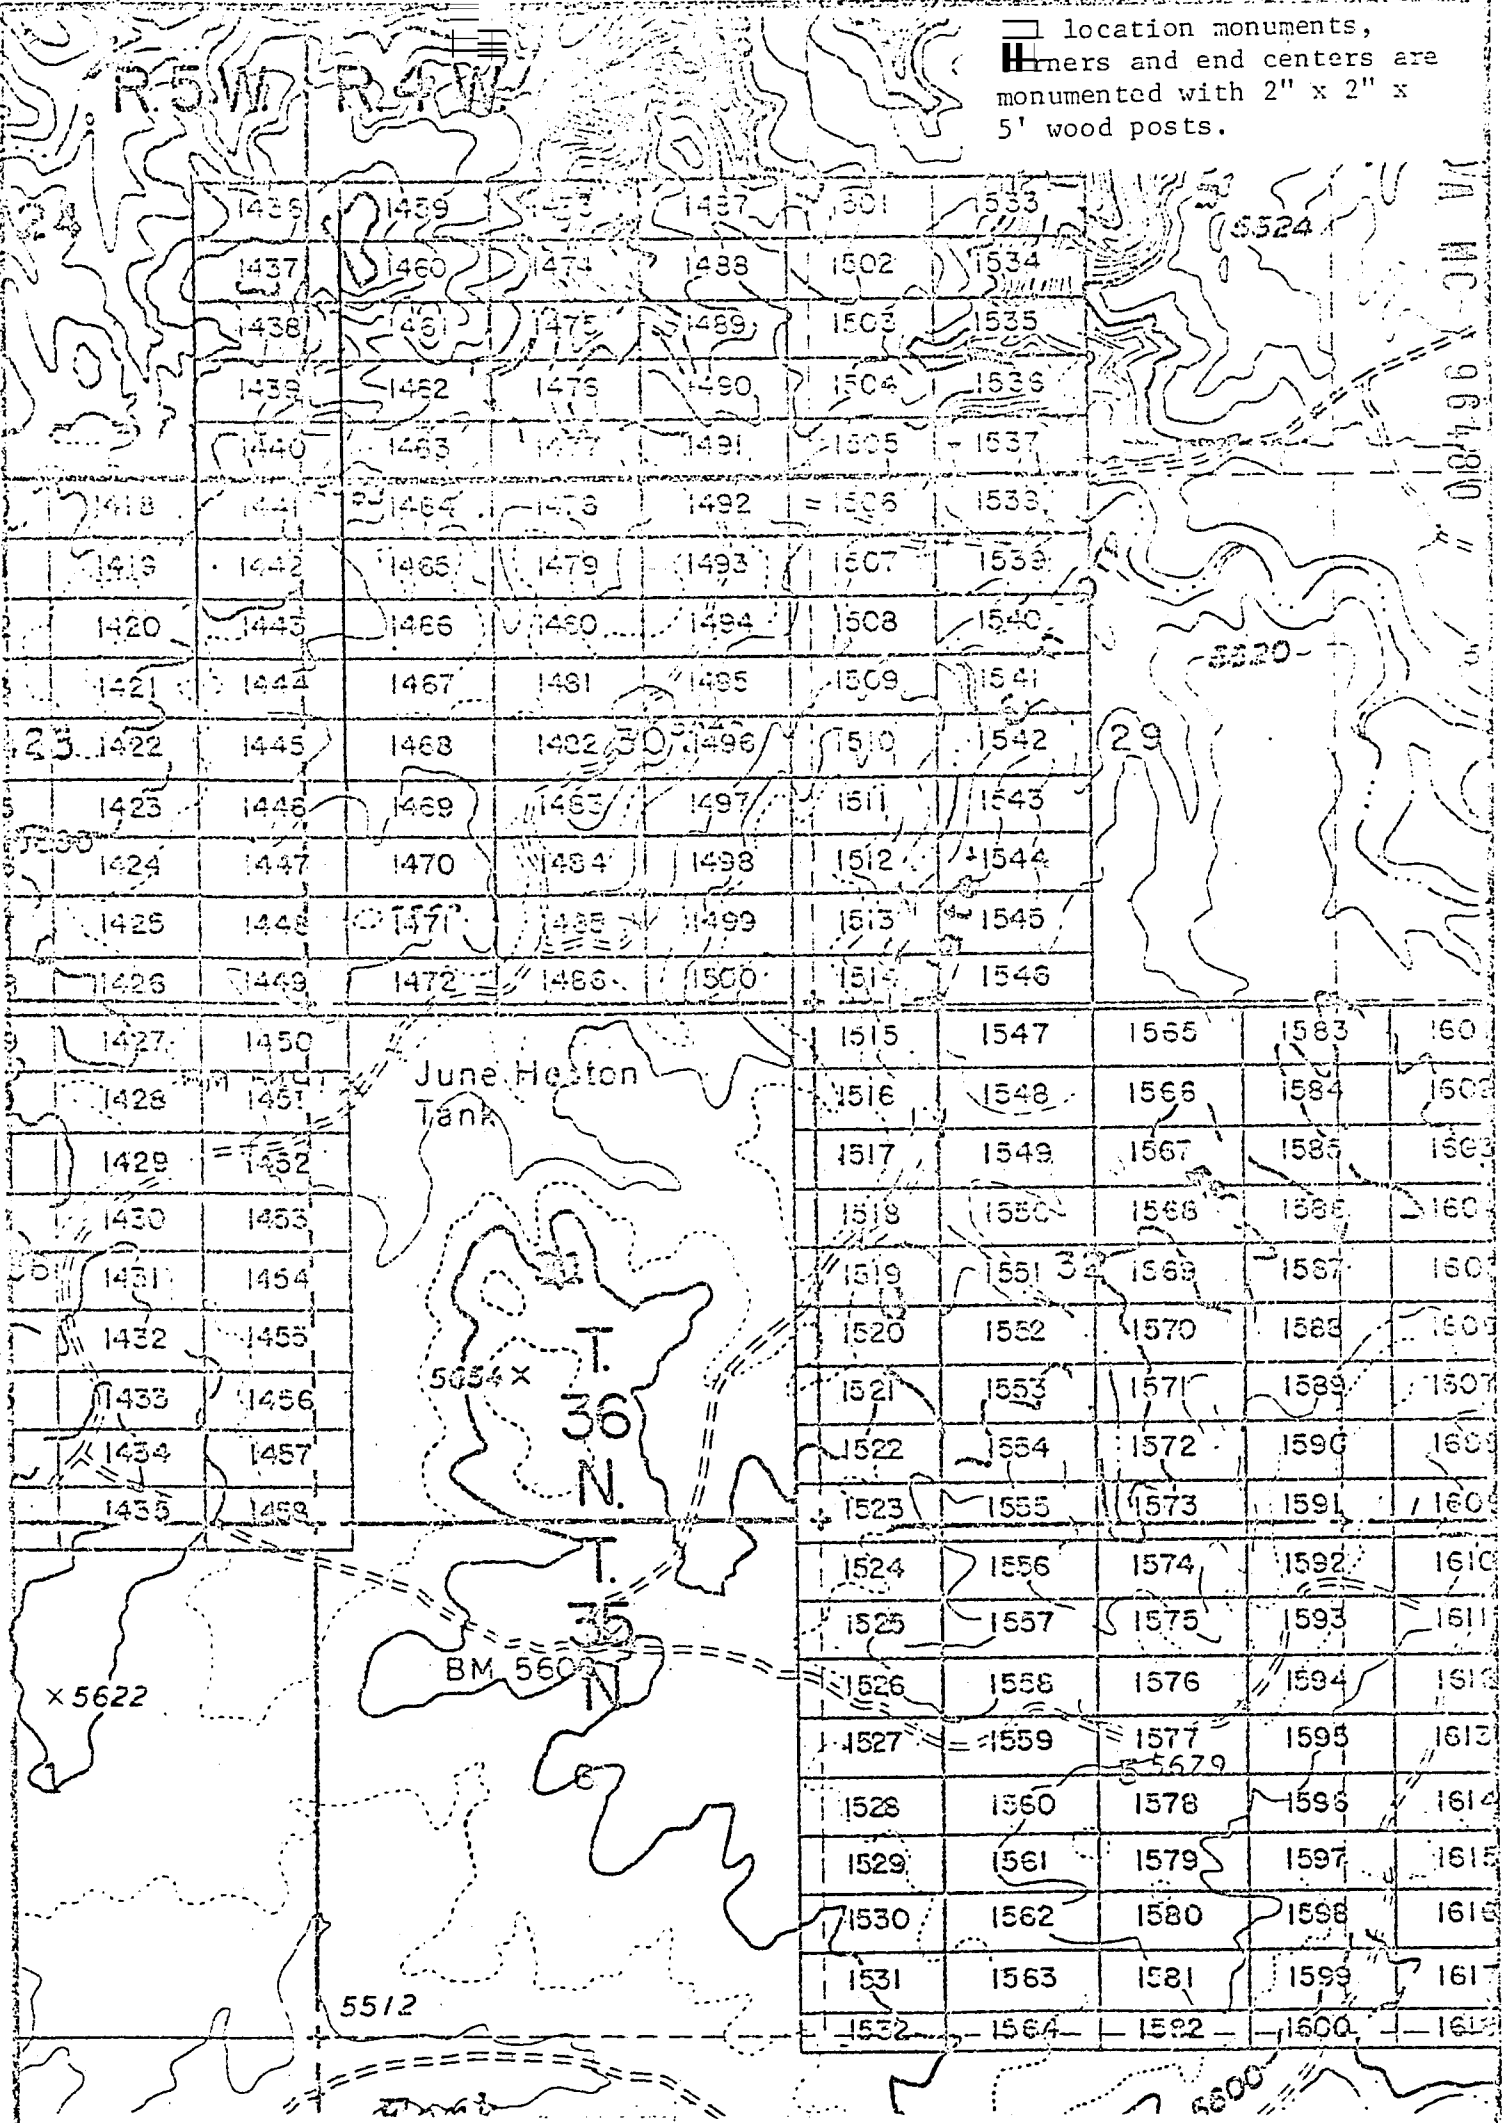 location monuments,
and end centers are
monumented with 2" x 2" x
5' wood posts.
R.5W. R.4W.
24
1436 1459 1487 1533
5524
1437 1460 1474 1488 1502 1534
1438 1461 1475 1489 1503 1535
1439 1462 1476 1490 1504 1536
1440 1463 1477 1491 1505 1537
1418 1441 1464 1478 1492 1506 1538
1419 1442 1465 1479 1493 1507 1539
1420 1443 1466 1480 1494 1508 1540
5520
1421 1444 1467 1481 1495 1509 1541
1422 1445 1468 1482 30 1496 1510 1542 29
1423 1446 1469 1483 1497 1511 1543
1424 1447 1470 1484 1498 1512 1544
1425 1448 1471 1485 1499 1513 1545
1426 1449 1472 1486 1500 1514 1546
1427 1450 1515 1547 1565 1583
June Heaton
Tank
1428 1451 1516 1548 1566 1584
1429 1452 1517 1549 1567 1585
1430 1453 1518 1550 1568 1586
1431 1454 1519 1551 32 1569 1587
T.
1432 1455 1520 1552 1570 1588
5654 X
36
1433 1456 1521 1553 1571 1589 1607
1434 1457 1522 1554 1572 1590
N.
1435 1458 1523 1555 1573 1591
T.
1524 1556 1574 1592 1610
35
1525 1557 1575 1593 1611
BM
N
X 5622
1526 1558 1576 1594
1527 1559 1577 1595 1613
5 5679
6
1528 1560 1578 1596 1614
1529 1561 1579 1597 1615
1530 1562 1580 1598 1616
1531 1563 1581 1599 1617
5512
1532 1564 1582 1600
5600